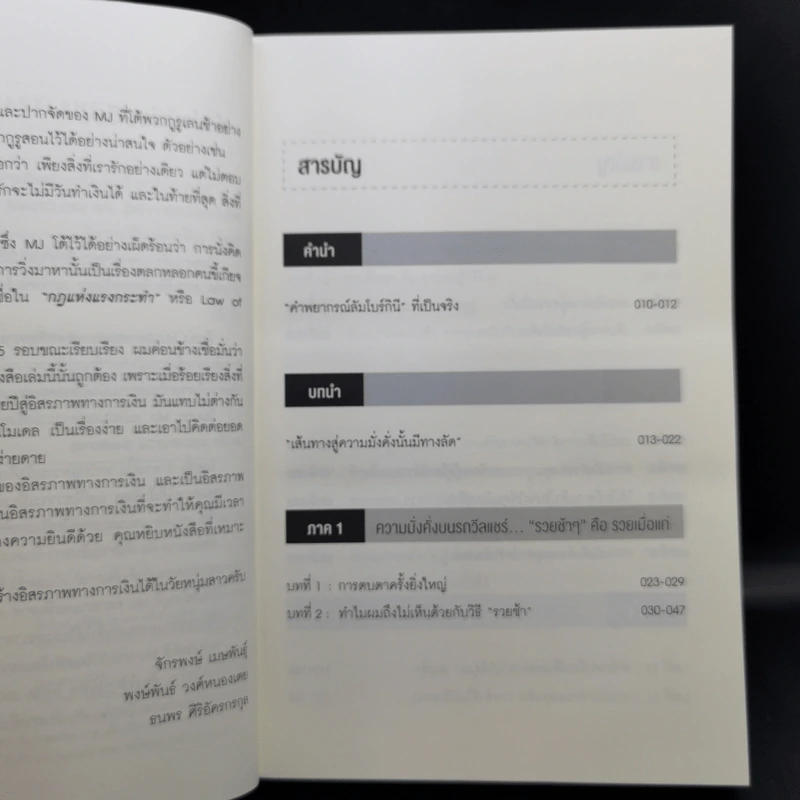 และปากจัดของ MJ ที่โต้พวกกูรูเลนช้าอย่าง
กูรูสอนไว้ได้อย่างน่าสนใจ ตัวอย่างเช่น
กว่า เพียงสิ่งที่เรารักอย่างเดียว แต่ไม่ตอบ
รักจะไม่มีวันทำเงินได้ และในท้ายที่สุด สิ่งที่
ซึ่ง MJ โต้ไว้ได้อย่างเผ็ดร้อนว่า การนั่งคิด
การวิ่งมาหานั้นเป็นเรื่องตลกหลอกคนขี้เกียจ
ชื่อใน "กฎแห่งแรงกระทำ" หรือ Law of
5 รอบขณะเรียบเรียง ผมค่อนข้างเชื่อมั่นว่า
สือเล่มนี้นั้นถูกต้อง เพราะเมื่อร้อยเรียงสิ่งที่
ยปีสู่อิสรภาพทางการเงิน มันแทบไม่ต่างกัน
โมเดล เป็นเรื่องง่าย และเอาไปคิดต่อยอด
ง่ายดาย
ของอิสรภาพทางการเงิน และเป็นอิสรภาพ
นอิสรภาพทางการเงินที่จะทำให้คุณมีเวลา
งความยินดีด้วย คุณหยิบหนังสือที่เหมาะ
ร้างอิสรภาพทางการเงินได้ในวัยหนุ่มสาวครับ
จักรพงษ์ เมษพันธุ์
พงษ์พันธ์ วงศ์หนองเตย
ธนพร ศิริอัครกรกุล
สารบัญ
คำนำ
"คำพยากรณ์ลัมโบร์กินี" ที่เป็นจริง 010-012
บทนำ
"เส้นทางสู่ความมั่งคั่งนั้นมีทางลัด" 013-022
ภาค 1 ความมั่งคั่งบนรถวีลแชร์... "รวยช้าๆ" คือ รวยเมื่อแก่
บทที่ 1 : การตบตาครั้งยิ่งใหญ่ 023-029
บทที่ 2 : ทำไมผมถึงไม่เห็นด้วยกับวิธี "รวยช้า" 030-047